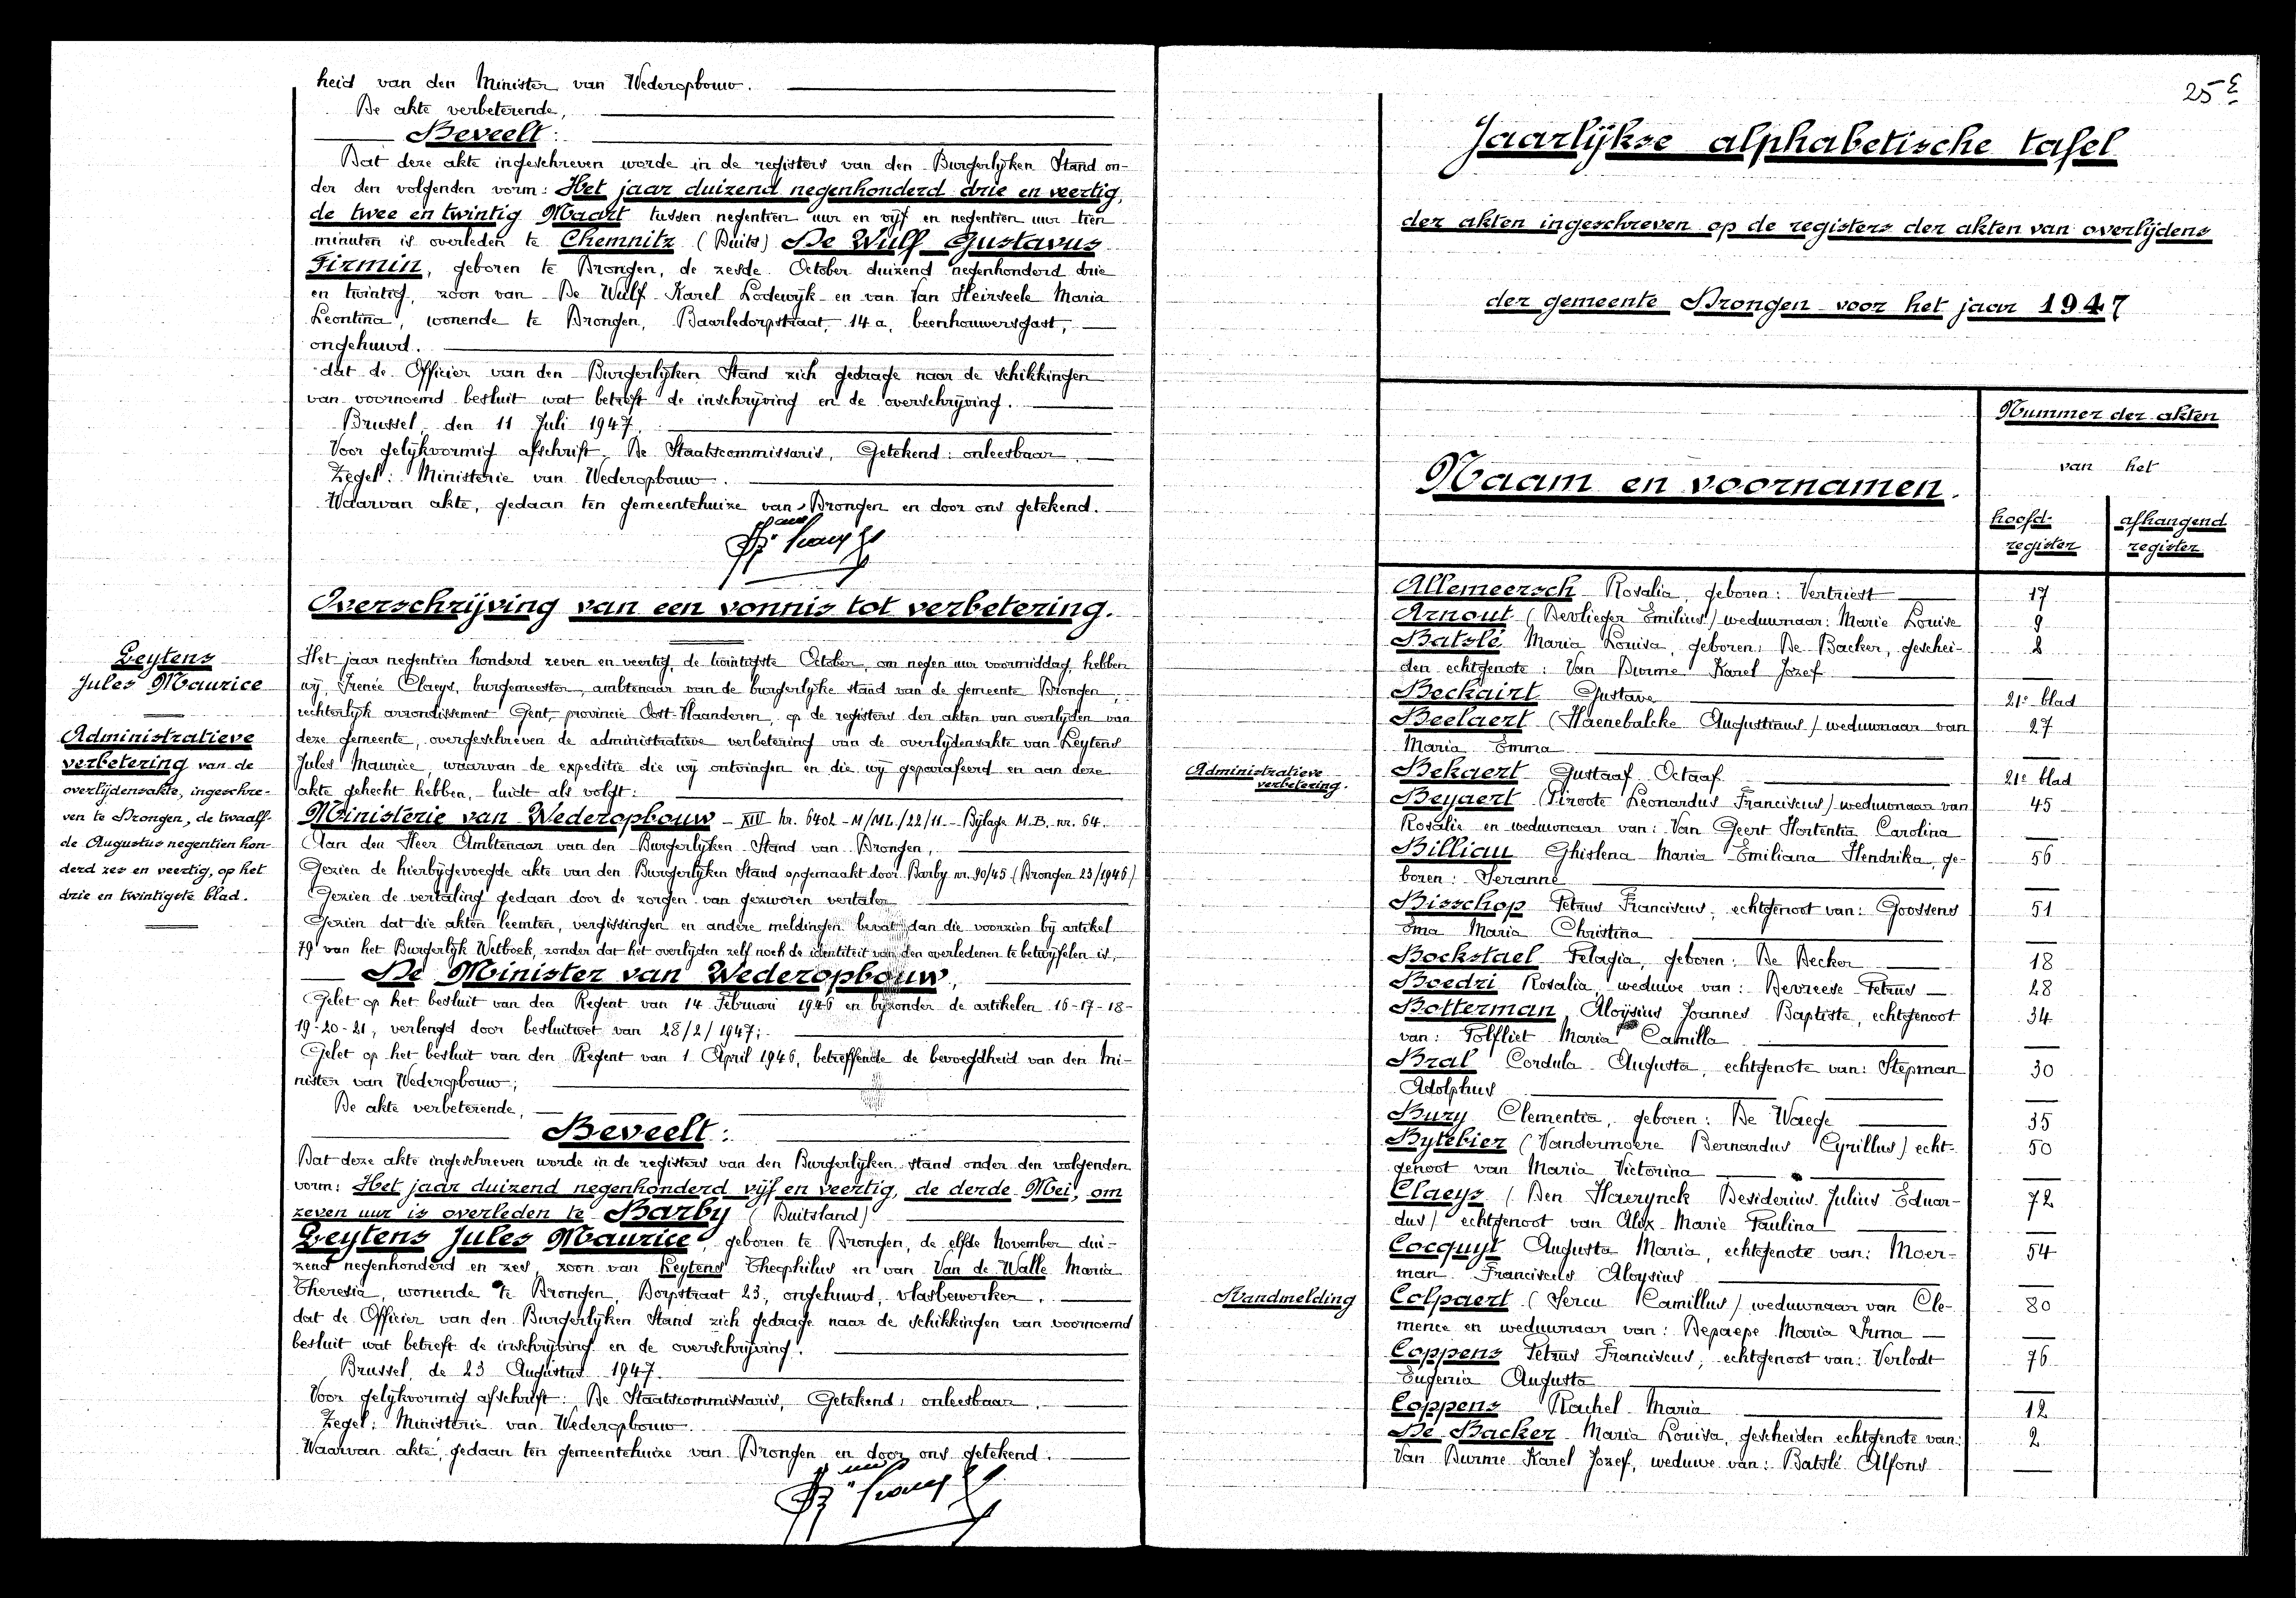 heid van den Minister van Wederopbouw.
De akte verbeterende,
Beveelt:
Dat deze akte ingeschreven worde in de registers van den Burgerlijken Stand on-
der den volgenden vorm: Het jaar duizend negenhonderd drie en veertig,
de twee en twintig Maart tussen negentien uur en vijf en negentien uur tien
minuten is overleden te Chemnitz (Duits) De Wulf Gustavus
Firmin, geboren te Drongen, de zesde October duizend negenhonderd drie
en twintig, zoon van De Wulf Karel Lodewijk en van Van Heirseele Maria
Leontina, wonende te Drongen, Baarledorpstraat, 14 a, beenhouwersgast,
ongehuwd.
dat de Officier van den Burgerlijken Stand zich gedrage naar de schikkingen
van voornoemd besluit wat betreft de inschrijving en de overschrijving.
Brussel, den 11 Juli 1947.
Voor gelijkvormig afschrift, De Staatscommissaris, Getekend: onleesbaar.
Zegel: Ministerie van Wederopbouw.
Waarvan akte, gedaan ten gemeentehuize van Drongen en door ons getekend.
Overschrijving van een vonnis tot verbetering.
Leytens
Jules Maurice
Administratieve
verbetering van de
overlijdensakte, ingeschre-
ven te Drongen, de twaalf-
de Augustus negentien hon-
derd zes en veertig, op het
drie en twintigste blad.
Het jaar negentien honderd zeven en veertig, de twintigste October, om negen uur voormiddag, hebben
wij, Irenée Claeys, burgemeester, ambtenaar van de burgerlijke stand van de gemeente Drongen,
rechterlijk arrondissement Gent, provincie Oost-Vlaanderen, op de registers der akten van overlijden van
deze gemeente, overgeschreven de administratieve verbetering van de overlijdensakte van Leytens
Jules Maurice, waarvan de expeditie die wij ontvingen en die wij geparafeerd en aan deze
akte gehecht hebben, luidt als volgt:
Ministerie van Wederopbouw - XIII nr. 6402 - M/ML/22/11 - Bijlage M.B. nr. 64.
Aan den Heer Ambtenaar van den Burgerlijken Stand van Drongen,
Gezien de hierbijgevoegde akte van den Burgerlijken Stand opgemaakt door Barby nr. 90/45 (Drongen 23/1946)
Gezien de vertaling gedaan door de zorgen van gezworen vertaler
Gezien dat die akten leemten, vergissingen en andere meldingen bevat dan die voorzien bij artikel
79 van het Burgerlijk Wetboek, zonder dat het overlijden zelf noch de identiteit van den overledenen te betwijfelen is,
De Minister van Wederopbouw,
Gelet op het besluit van den Regent van 14 Februari 1946 en bijzonder de artikelen 16-17-18-
19-20-21, verlengd door besluitwet van 28/2/1947;
Gelet op het besluit van den Regent van 1 April 1946, betreffende de bevoegdheid van den Mi-
nister van Wederopbouw;
De akte verbeterende,
Beveelt:
Dat deze akte ingeschreven worde in de registers van den Burgerlijken stand onder den volgenden
vorm: Het jaar duizend negenhonderd vijf en veertig, de derde Mei, om
zeven uur is overleden te Barby (Duitsland)
Leytens Jules Maurice, geboren te Drongen, de elfde November dui-
zend negenhonderd en zes, zoon van Leytens Theophilus en van Van de Walle Maria
Theresia, wonende te Drongen, Dorpstraat 23, ongehuwd, vlasbewerker.
dat de Officier van den Burgerlijken Stand zich gedrage naar de schikkingen van voornoemd
besluit wat betreft de inschrijving en de overschrijving.
Brussel, de 23 Augustus 1947.
Voor gelijkvormig afschrift: De Staatscommissaris, Getekend: onleesbaar.
Zegel: Ministerie van Wederopbouw.
Waarvan akte, gedaan ten gemeentehuize van Drongen en door ons getekend.
25e
Jaarlijkse alphabetische tafel
der akten ingeschreven op de registers der akten van overlijdens
der gemeente Drongen voor het jaar 1947
Naam en voornamen.
Nummer der akten
van het
hoofd- afhangend
register register
Allemeersch Rosalia, geboren: Vertriest 17
Arnout (Devlieger Emilius) weduwnaar: Marie Louise 9
Batslé Maria Louisa, geboren: De Backer, geschei- 2
den echtgenote: Van Durme Karel Jozef
Beckairt Gustave 21e blad
Beelaert (Haenebalcke Augustinus) weduwnaar van 27
Maria Emma
Administratieve
verbetering.
Bekaert Gustaaf Octaaf 21e blad
Beyaert (Piroote Leonardus Franciscus) weduwnaar van 45
Rosalie en weduwnaar van: Van Geert Hortentia Carolina
Billiau Ghislena Maria Emiliana Hendrika, ge- 56
boren: Seranne
Bisschop Petrus Franciscus, echtgenoot van: Goossens 51
Oma Maria Christina
Bockstael Pelagia, geboren: De Decker 18
Boedri Rosalia, weduwe van: Devreese Petrus 28
Botterman Aloÿsius Joannes Baptiste, echtgenoot 34
van: Polfliet Maria Camilla
Bral Cordula Augusta, echtgenote van: Stepman 30
Adolphus
Buzy Clementia, geboren: De Waege 35
Bytebier (Vandermoere Bernardus Cyrillus) echt- 50
genoot van Maria Victorina
Claeys (Den Haerynck Desiderius Julius Eduar- 72
dus) echtgenoot van Alix Marie Paulina
Cocquyt Augusta Maria, echtgenote van: Moer- 54
man Franciscus Aloysius
Randmelding
Colpaert (Sercu Camillus) weduwnaar van Cle- 80
mence en weduwnaar van: Depaepe Maria Irma
Coppens Petrus Franciscus, echtgenoot van: Verlodt 76
Eugenia Augusta
Coppens Rachel Maria 12
De Backer Maria Louisa, gescheiden echtgenote van: 2
Van Durme Karel Jozef, weduwe van: Batslé Alfons